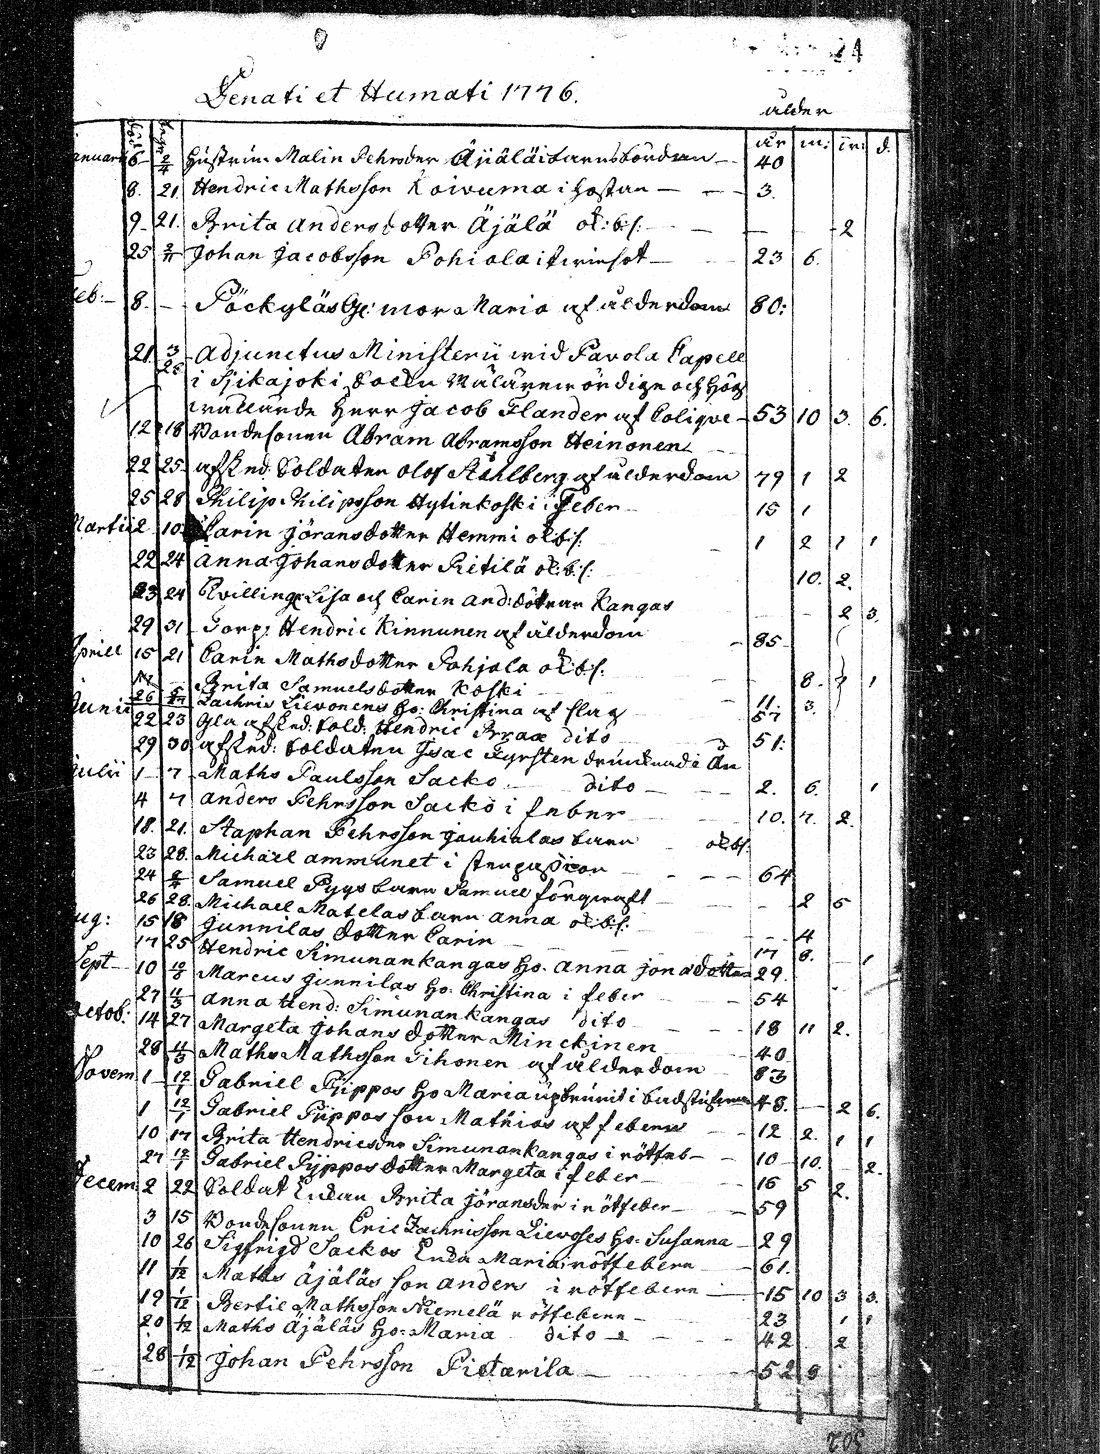 24
Denati et Humati 1776.
ålder
år m: d.
Januarii 6 2/4 Hustrun Malin Pehrsder Äijälä i barnsbördan 40
8. 21. Hendric Mathsson Koivuma i hostan 3.
9 21. Brita Andersdotter Äjälä ok: b:s: 2
25 Johan Jacobsson Pohiola 23 6.
Feb: 8. Päckyläs Gl: mor Maria af ålderdom 80:
21. 3/28 Adjunctus Ministerii vid Pavola Capell
i Sijkajoki Sockn Välärevördige och Hög
wällärde Herr Jacob Flander af Colique 53 10 3. 6.
12 18 Bondesonen Abram Abramsson Heinonen
22 25 afsked: Soldaten Olof Ståhlberg af ålderdom 79 1 2
25 28 Philip Philipsson Hytinkoski i Feber 15 1
Martii 2 10 Carin Jöransdotter Hemmi ok:b:s: 1 2 1 1
22 24 Anna Johansdotter Pitilä ok:b:s: 10. 2.
23 24 Tvilling: Lisa och Carin And: döttrar Kangas 2 3.
29 31 Gorp: Hendric Kinnunen af ålderdom 85
Aprill 15 21 Carin Mathsdotter Pohjola ok:b:s: 8. 1
17 Brita Samuelsdotter Koski 11. 3.
Junii 26 Zachris Lievonens Ho: Christina af slag 57
22 23 Gla afsked: Sold: Hendric Braax dito 51:
29 30 afsked: Soldaten Isac Fyrsten drunknade i Ån
Julii 1 7 Maths Paulsson Sacko dito 2. 6. 1
4 7 Anders Pehrsson Sacko i feber 10. 7. 2.
18. 21. Staphan Pehrsson Jauhialas barn ok:b:s:
23 28. Michäel Ammunet i 64
24 Samuel Pygs barn Samuel förqwaft 2 5
26 28. Michael Matelas barn Anna ok:b:s:
Aug: 15 18 Junnilas dotter Carin 4
17 25 Hendric Simunankangas Ho. Anna Jonsdotter 17 8. 1
Sept 10 12/8 Marcus Junnilas Ho: Christina i feber 29.
27 11/3 Anna Hend: Simunankangas dito 54
Octob: 14 27 Margeta Johansdotter Minckinen 18 11 2.
28 11/3 Maths Mathsson Tihonen af ålderdom 40
Novem 1 12/1 Gabriel Pijppos Ho Maria 83
1 12/1 Gabriel Pijppos son Mathias af febern 48. 2 6.
10 17 Brita Hendricsder Simunankangas i rötfeb 12 2. 1 1
27 12/1 Gabriel Pijppos dotter Margeta i feber 10 10. 2.
Decem 2 22 Soldat Enkan Brita Jöransder i rötfeber 16 5 2.
3 15 Bondesonen Eric Zachrisson Lievoses Ho: Susanna 59
10 26 Sigfrigd Sackos Enka Maria i rötfebern 29
11 1/12 Maths Äjäläs son Anders i rötfebern 61.
19 1/12 Bertil Mathsson Niemelä rötfebern 15 10 3 3.
20 1/12 Maths Äjäläs Ho: Maria dito 23 1 1
42 2
28 1/12 Johan Pehrsson Pietarila 52 9